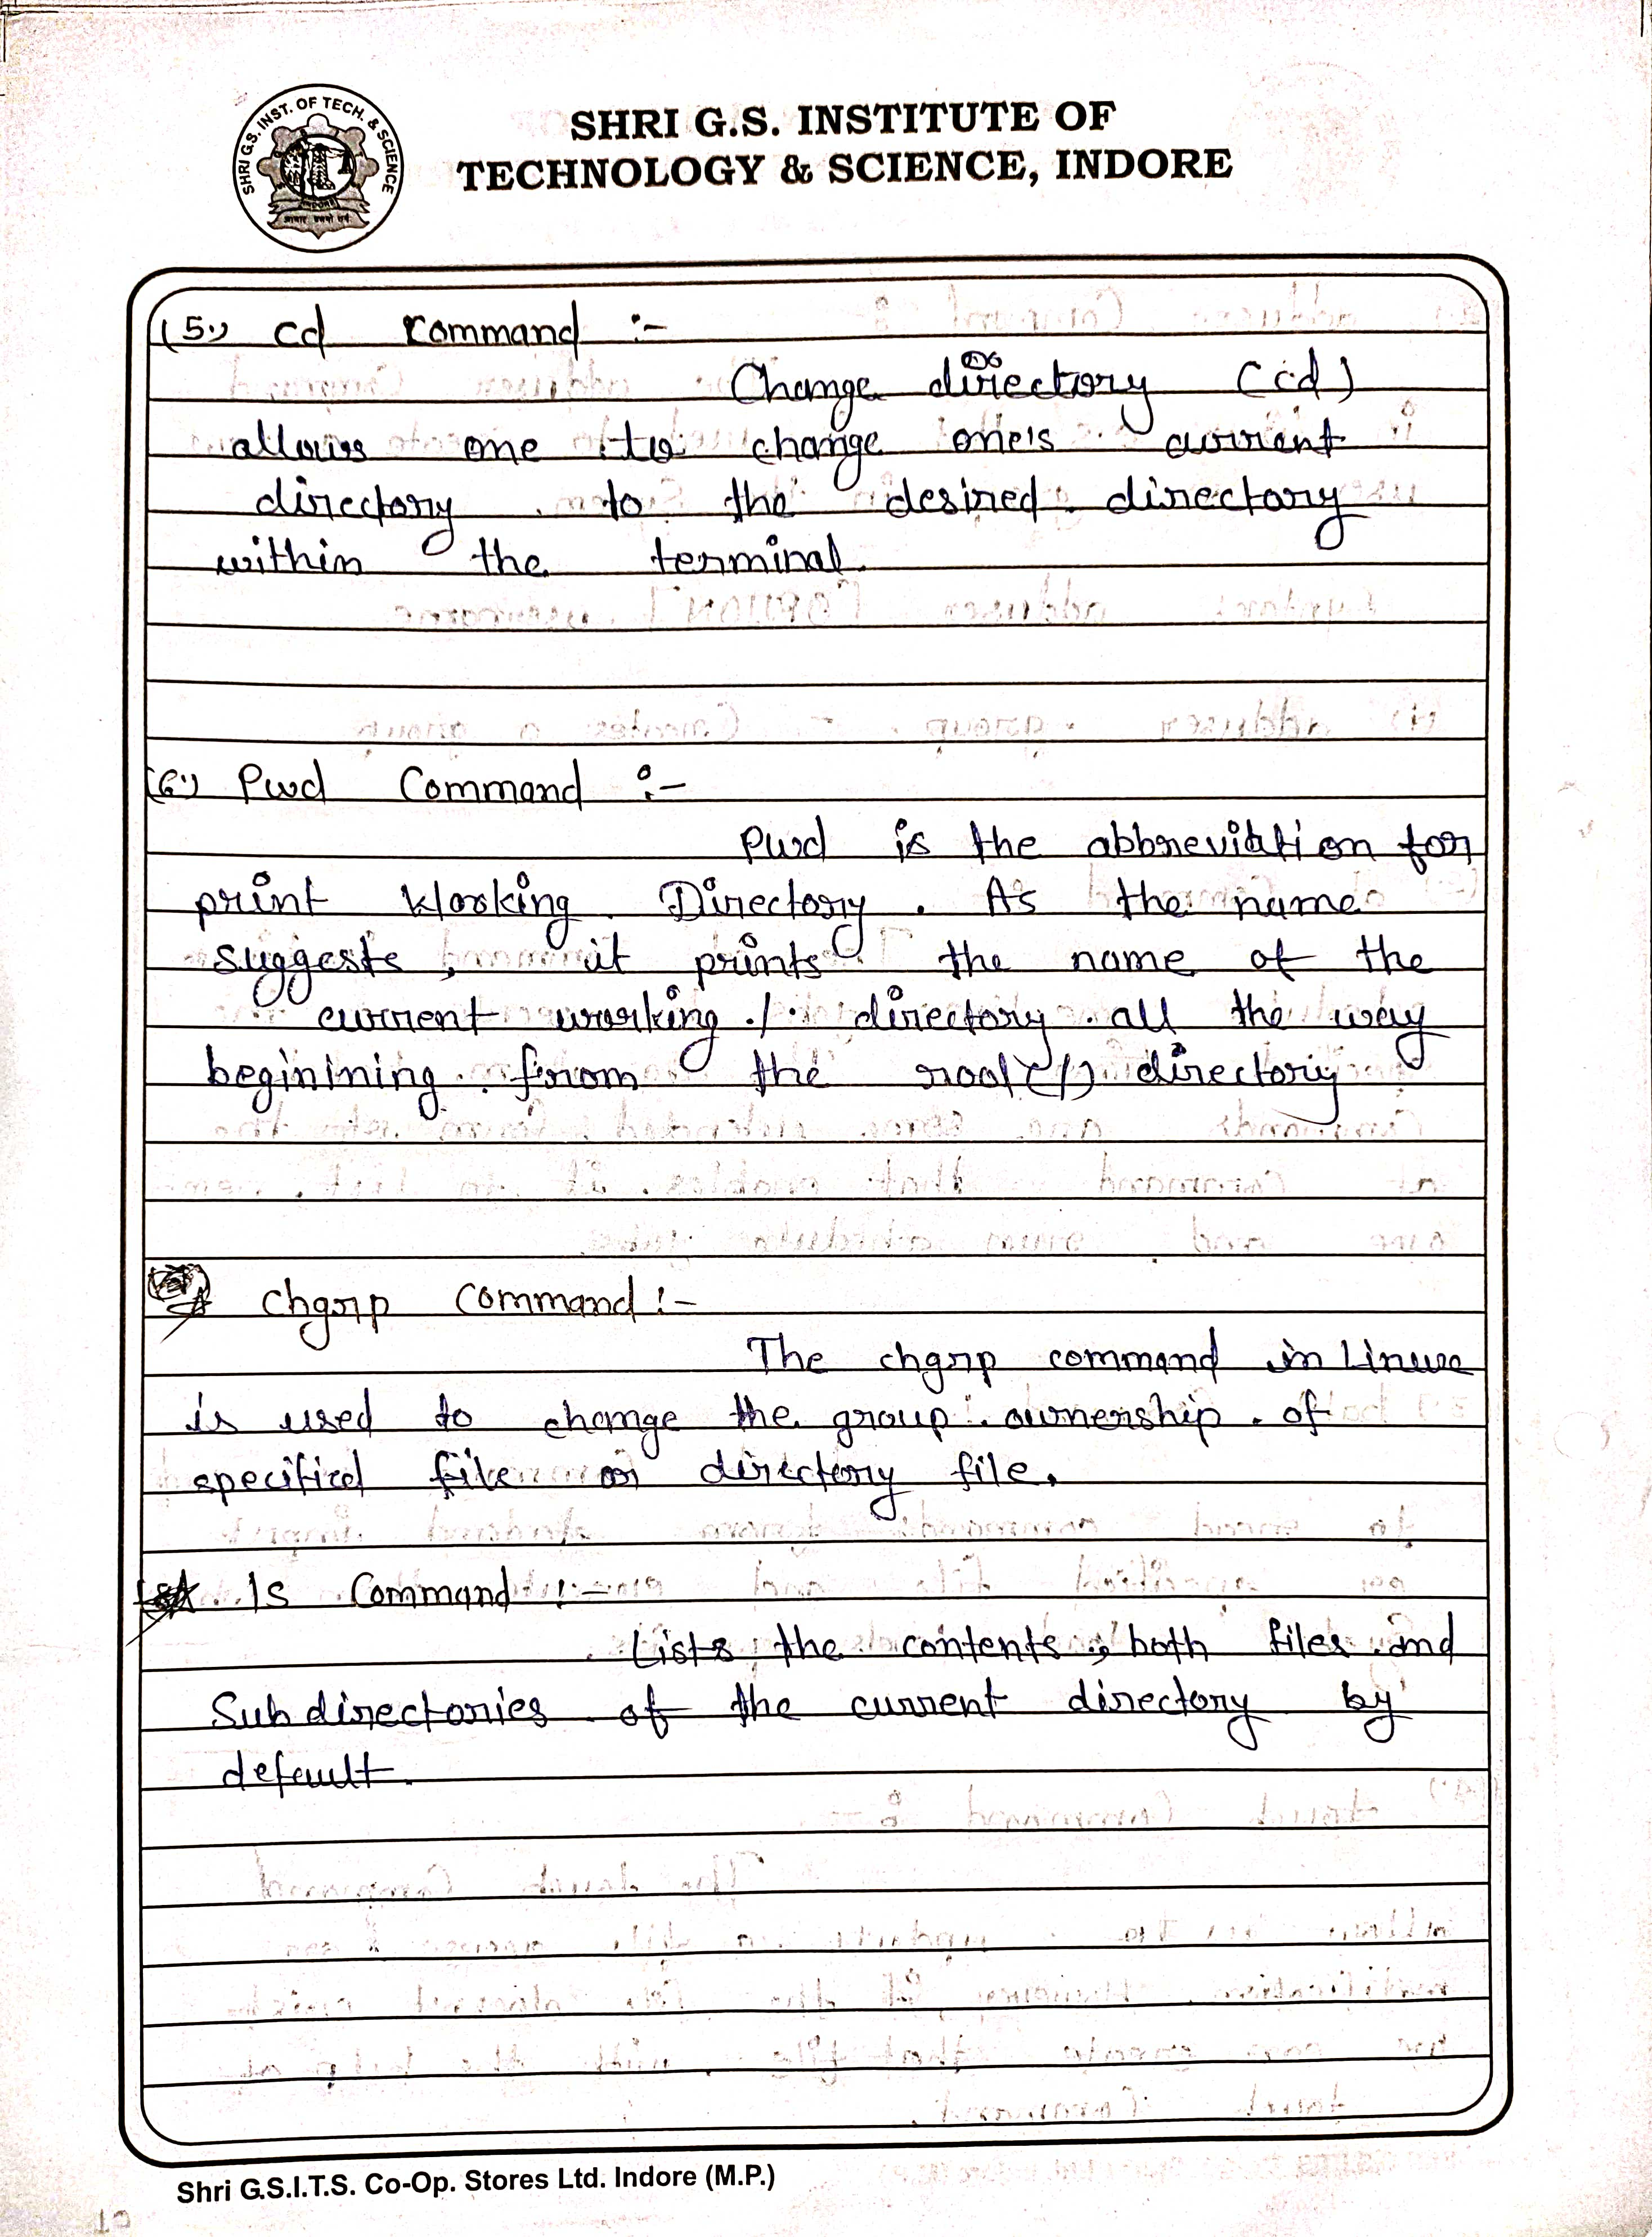 SHRI G.S. INST. OF TECH. & SCIENCE
INDORE
SHRI G.S. INSTITUTE OF
TECHNOLOGY & SCIENCE, INDORE
(5.) cd command :-
Change directory (cd)
allows one to change one's current
directory to the desired directory
within the terminal.
(6.) Pwd Command :-
Pwd is the abbreviation for
print Working Directory. As the name
suggests, it prints the name of the
current working directory all the way
beginining from the root(/) directory
chgrp command :-
The chgrp command in Linux
is used to change the group ownership of
specified file or directory file.
ls Command :-
Lists the contents, both files and
Subdirectories of the current directory by
default.
Shri G.S.I.T.S. Co-Op. Stores Ltd. Indore (M.P.)